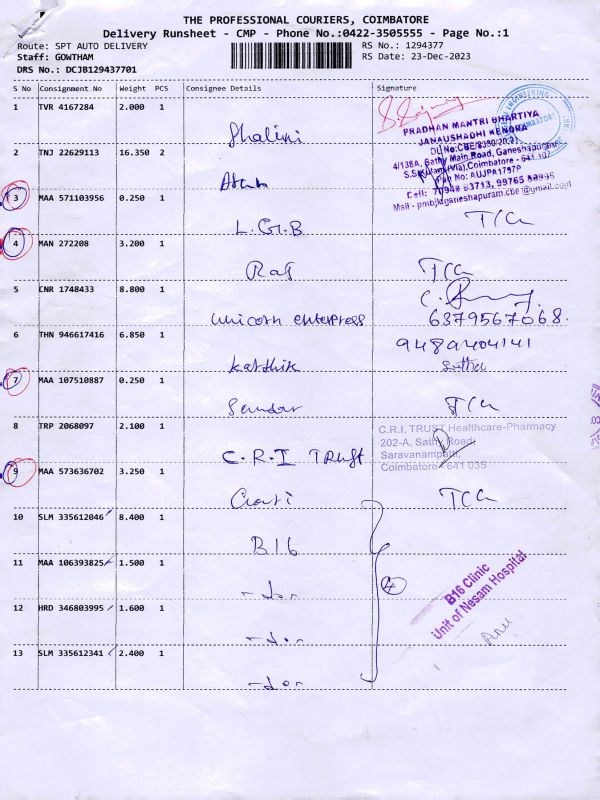 THE PROFESSIONAL COURIERS, COIMBATORE
Delivery Runsheet - CMP - Phone No.:0422-3505555 - Page No.:1
Route: SPT AUTO DELIVERY
RS No.: 1294377
Staff: GOWTHAM
RS Date: 23-Dec-2023
DRS No.: DCJB129437701
S No Consignment No Weight PCS Consignee Details Signature
1 TVR 4167284 2.000 1 Shalini
PRADHAN MANTRI BHARTIYA
JANAUSHADHI KENDRA
4/138A, Sathy Main Road, Ganeshapuram
S.S.Kulam(Via), Coimbatore - 641 107
Pan No: AUJPA1797P
ENGINEERING
COIMBATORE
2 TNJ 22629113 16.350 2
3 MAA 571103956 0.250 1 L.G.B
4 MAN 272208 3.200 1 Raj
5 CNR 1748433 8.800 1 unicorn enterpress 6379567068.
6 THN 946617416 6.850 1 Karthik 9489404141
7 MAA 107510887 0.250 1 Sundar
8 TRP 2068097 2.100 1 C.R.I TRUST
C.R.I. TRUST Healthcare-Pharmacy
202-A, Sathy Road,
Saravanampatti,
Coimbatore - 641 035
9 MAA 573636702 3.250 1
10 SLM 335612046 8.400 1 B16
11 MAA 106393825 1.500 1 -do-
4
B16 Clinic
Unit of Nesam Hospital
12 HRD 346803995 1.600 1 -do-
13 SLM 335612341 2.400 1 -do-